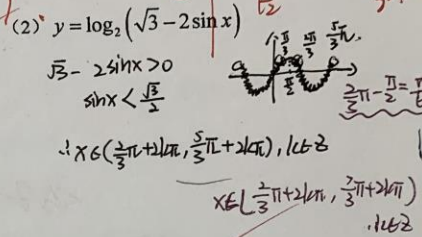 (2) y = log₂(√3 − 2sin x)
√3 − 2sinx > 0
sinx < √3/2
π/3 2/3π 5/3π
π/2
2/3π − π/2 = π/
∴ x∈(2/3π+2kπ, 5/3π+2kπ), k∈Z
x∈(2/3π+2kπ, 7/3π+2kπ)
, k∈Z